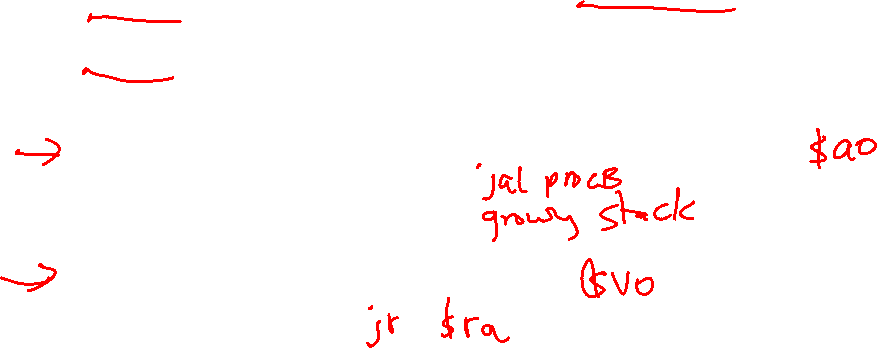 $a0
jal procB
growing stack
$v0
jr $ra